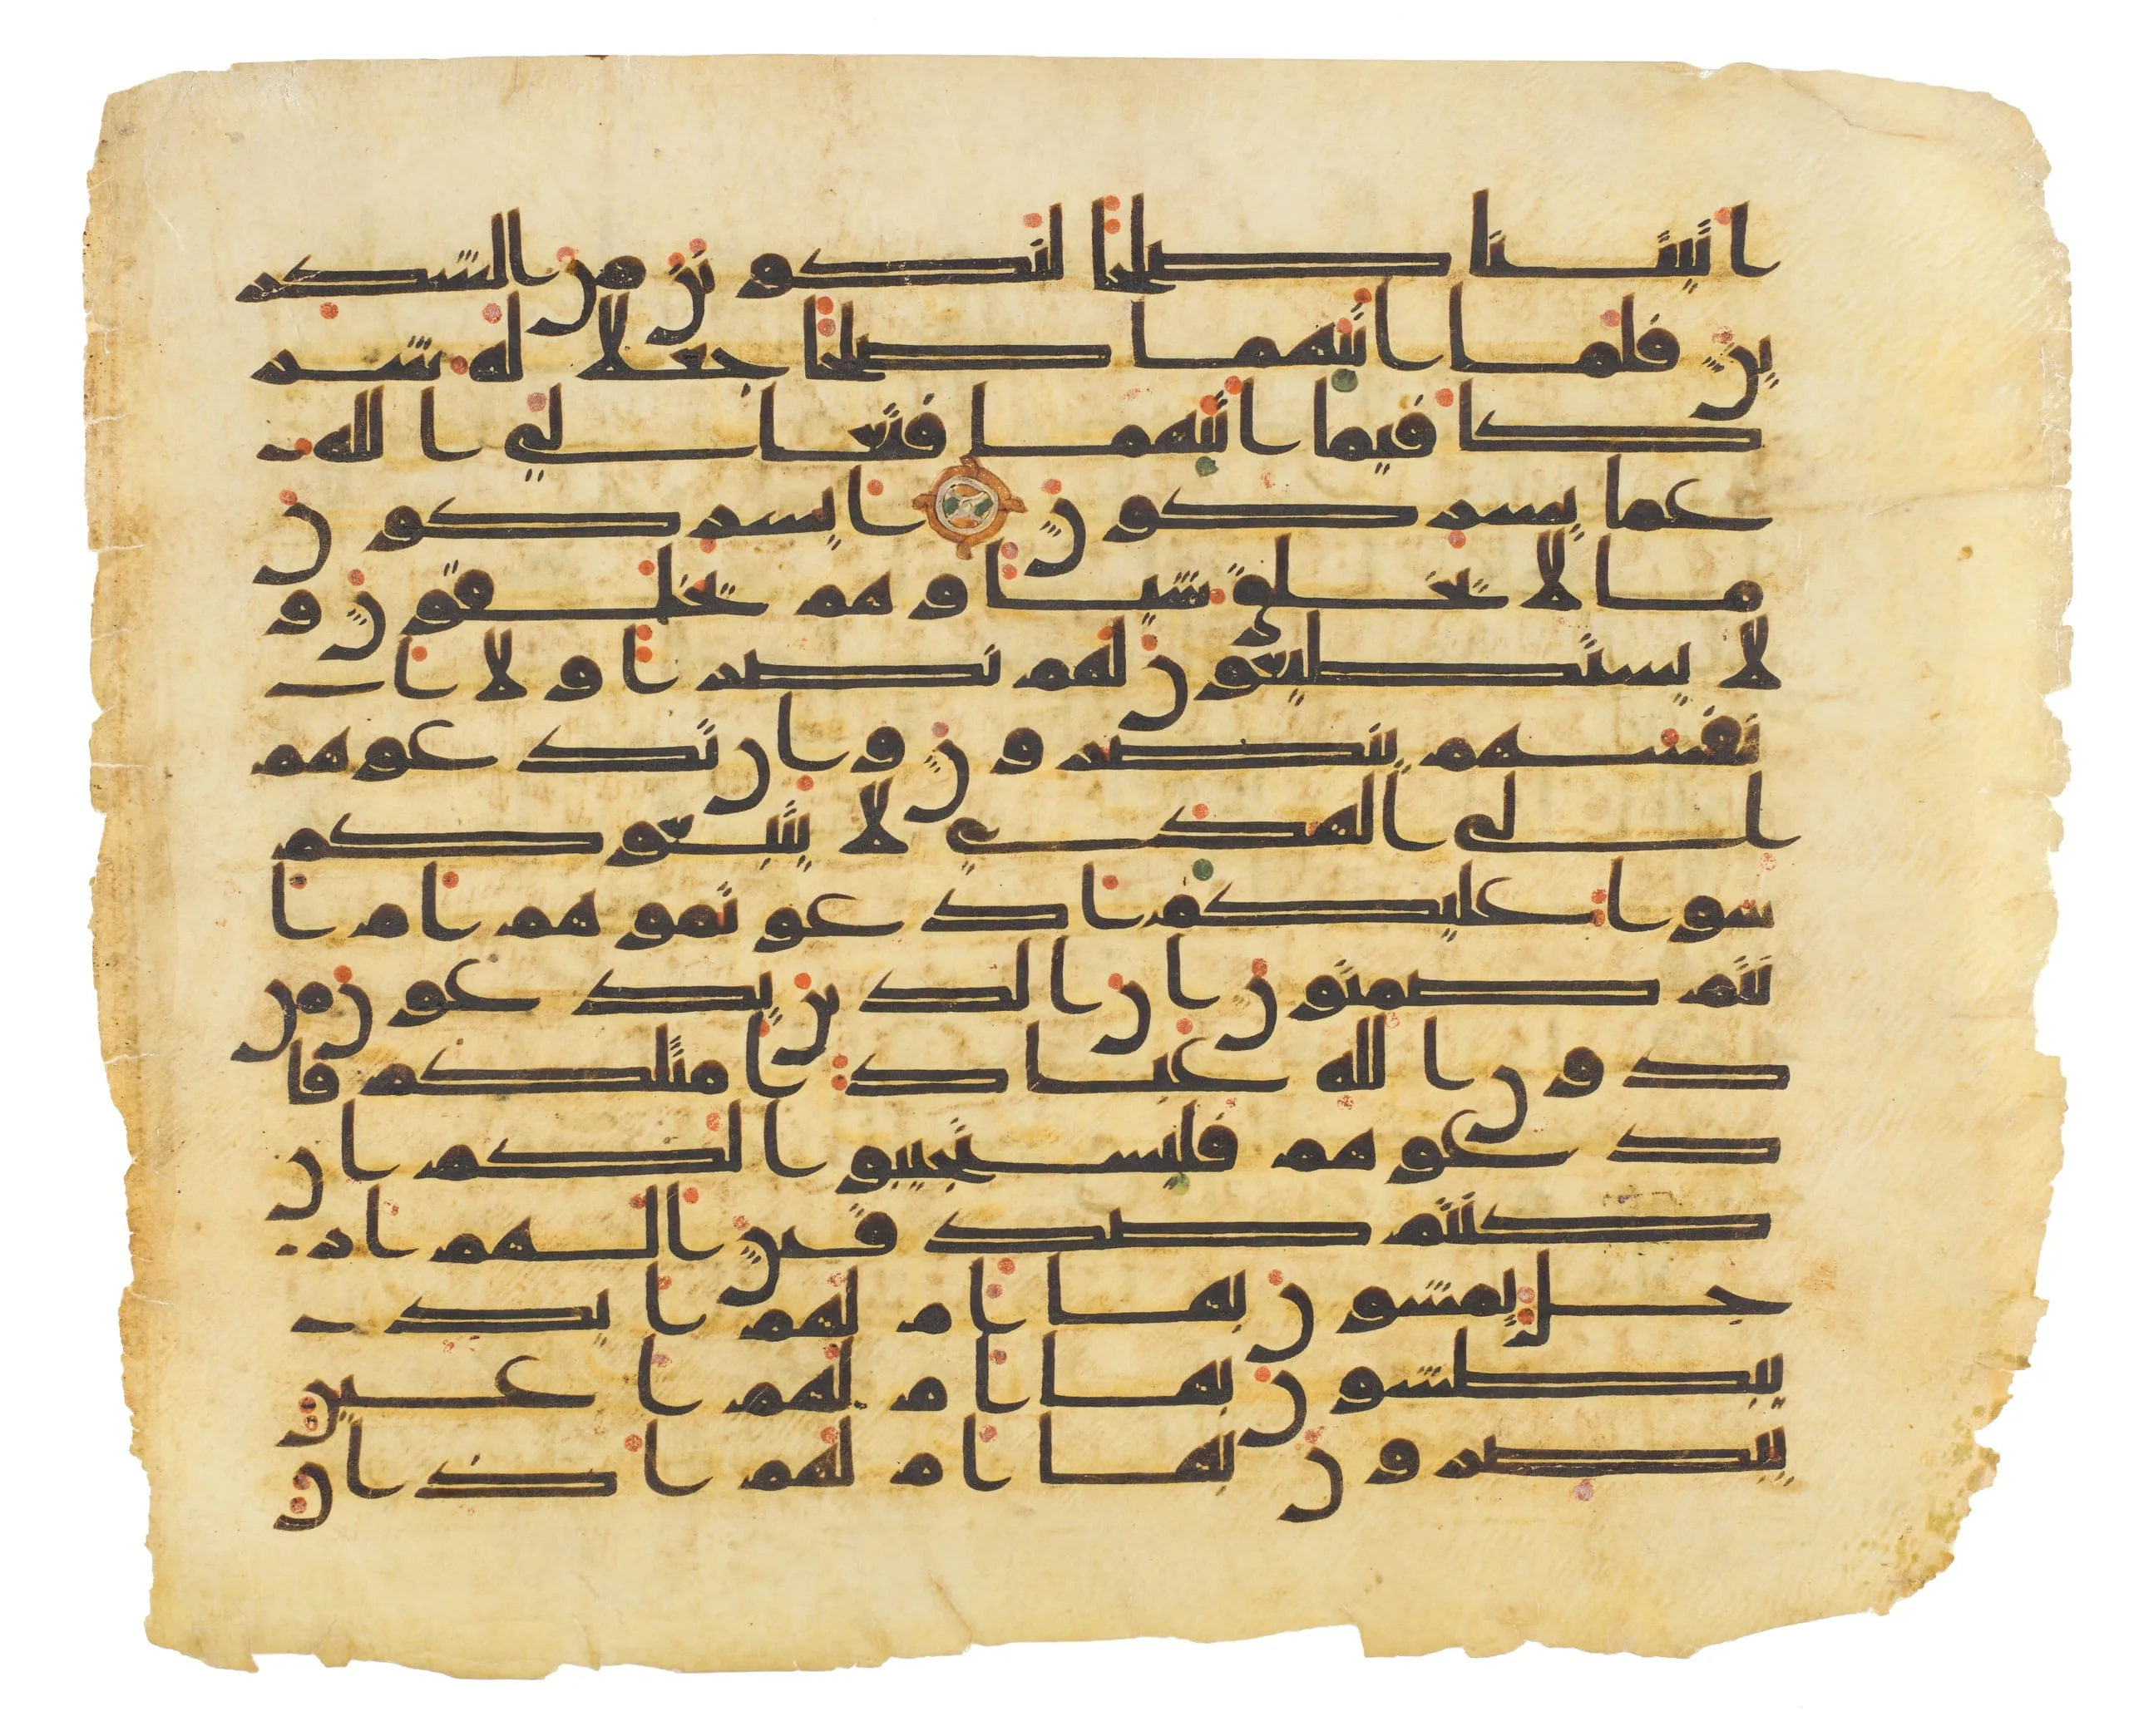 اتيتنا صلحا لنكونن من الشكر
ين فلما اتيهما صلحا جعلا له شر
كا فيما اتيهما فتعالى الله
عما يشركون ايشركون
ما لا يخلق شيا وهم يخلقون و
لا يستطيعون لهم نصرا ولا ا
نفسهم ينصرون وان تدعوهم
الى الهدى لا يتبعوكم
سوا عليكم ادعوتموهم ام ا
نتم صمتون ان الذين يدعون من
دون الله عباد امثلكم فا
دعوهم فليستجيبوا لكم ان
كنتم صدقين الهم ار
جل يمشون بها ام لهم ايد
يبطشون بها ام لهم اعين
يبصرون بها ام لهم اذان